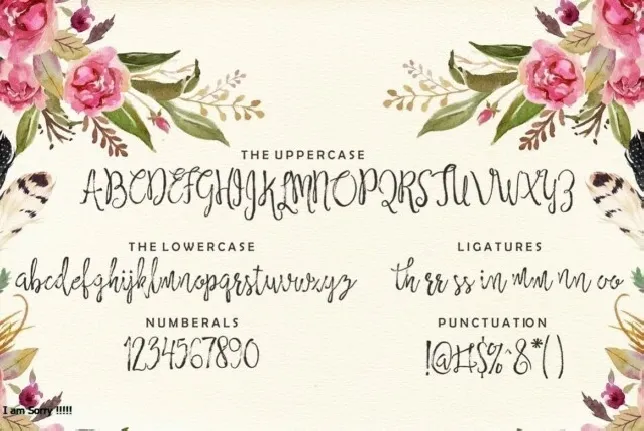 THE UPPERCASE
ABCDEFGHIJKLMNOPQRSTUVWXYZ
THE LOWERCASE
abcdefghijklmnopqrstuvwxyz
LIGATURES
th rr ss in mm nn oo
NUMBERALS
1234567890
PUNCTUATION
!@#$%^&*()
I am Sorry !!!!!